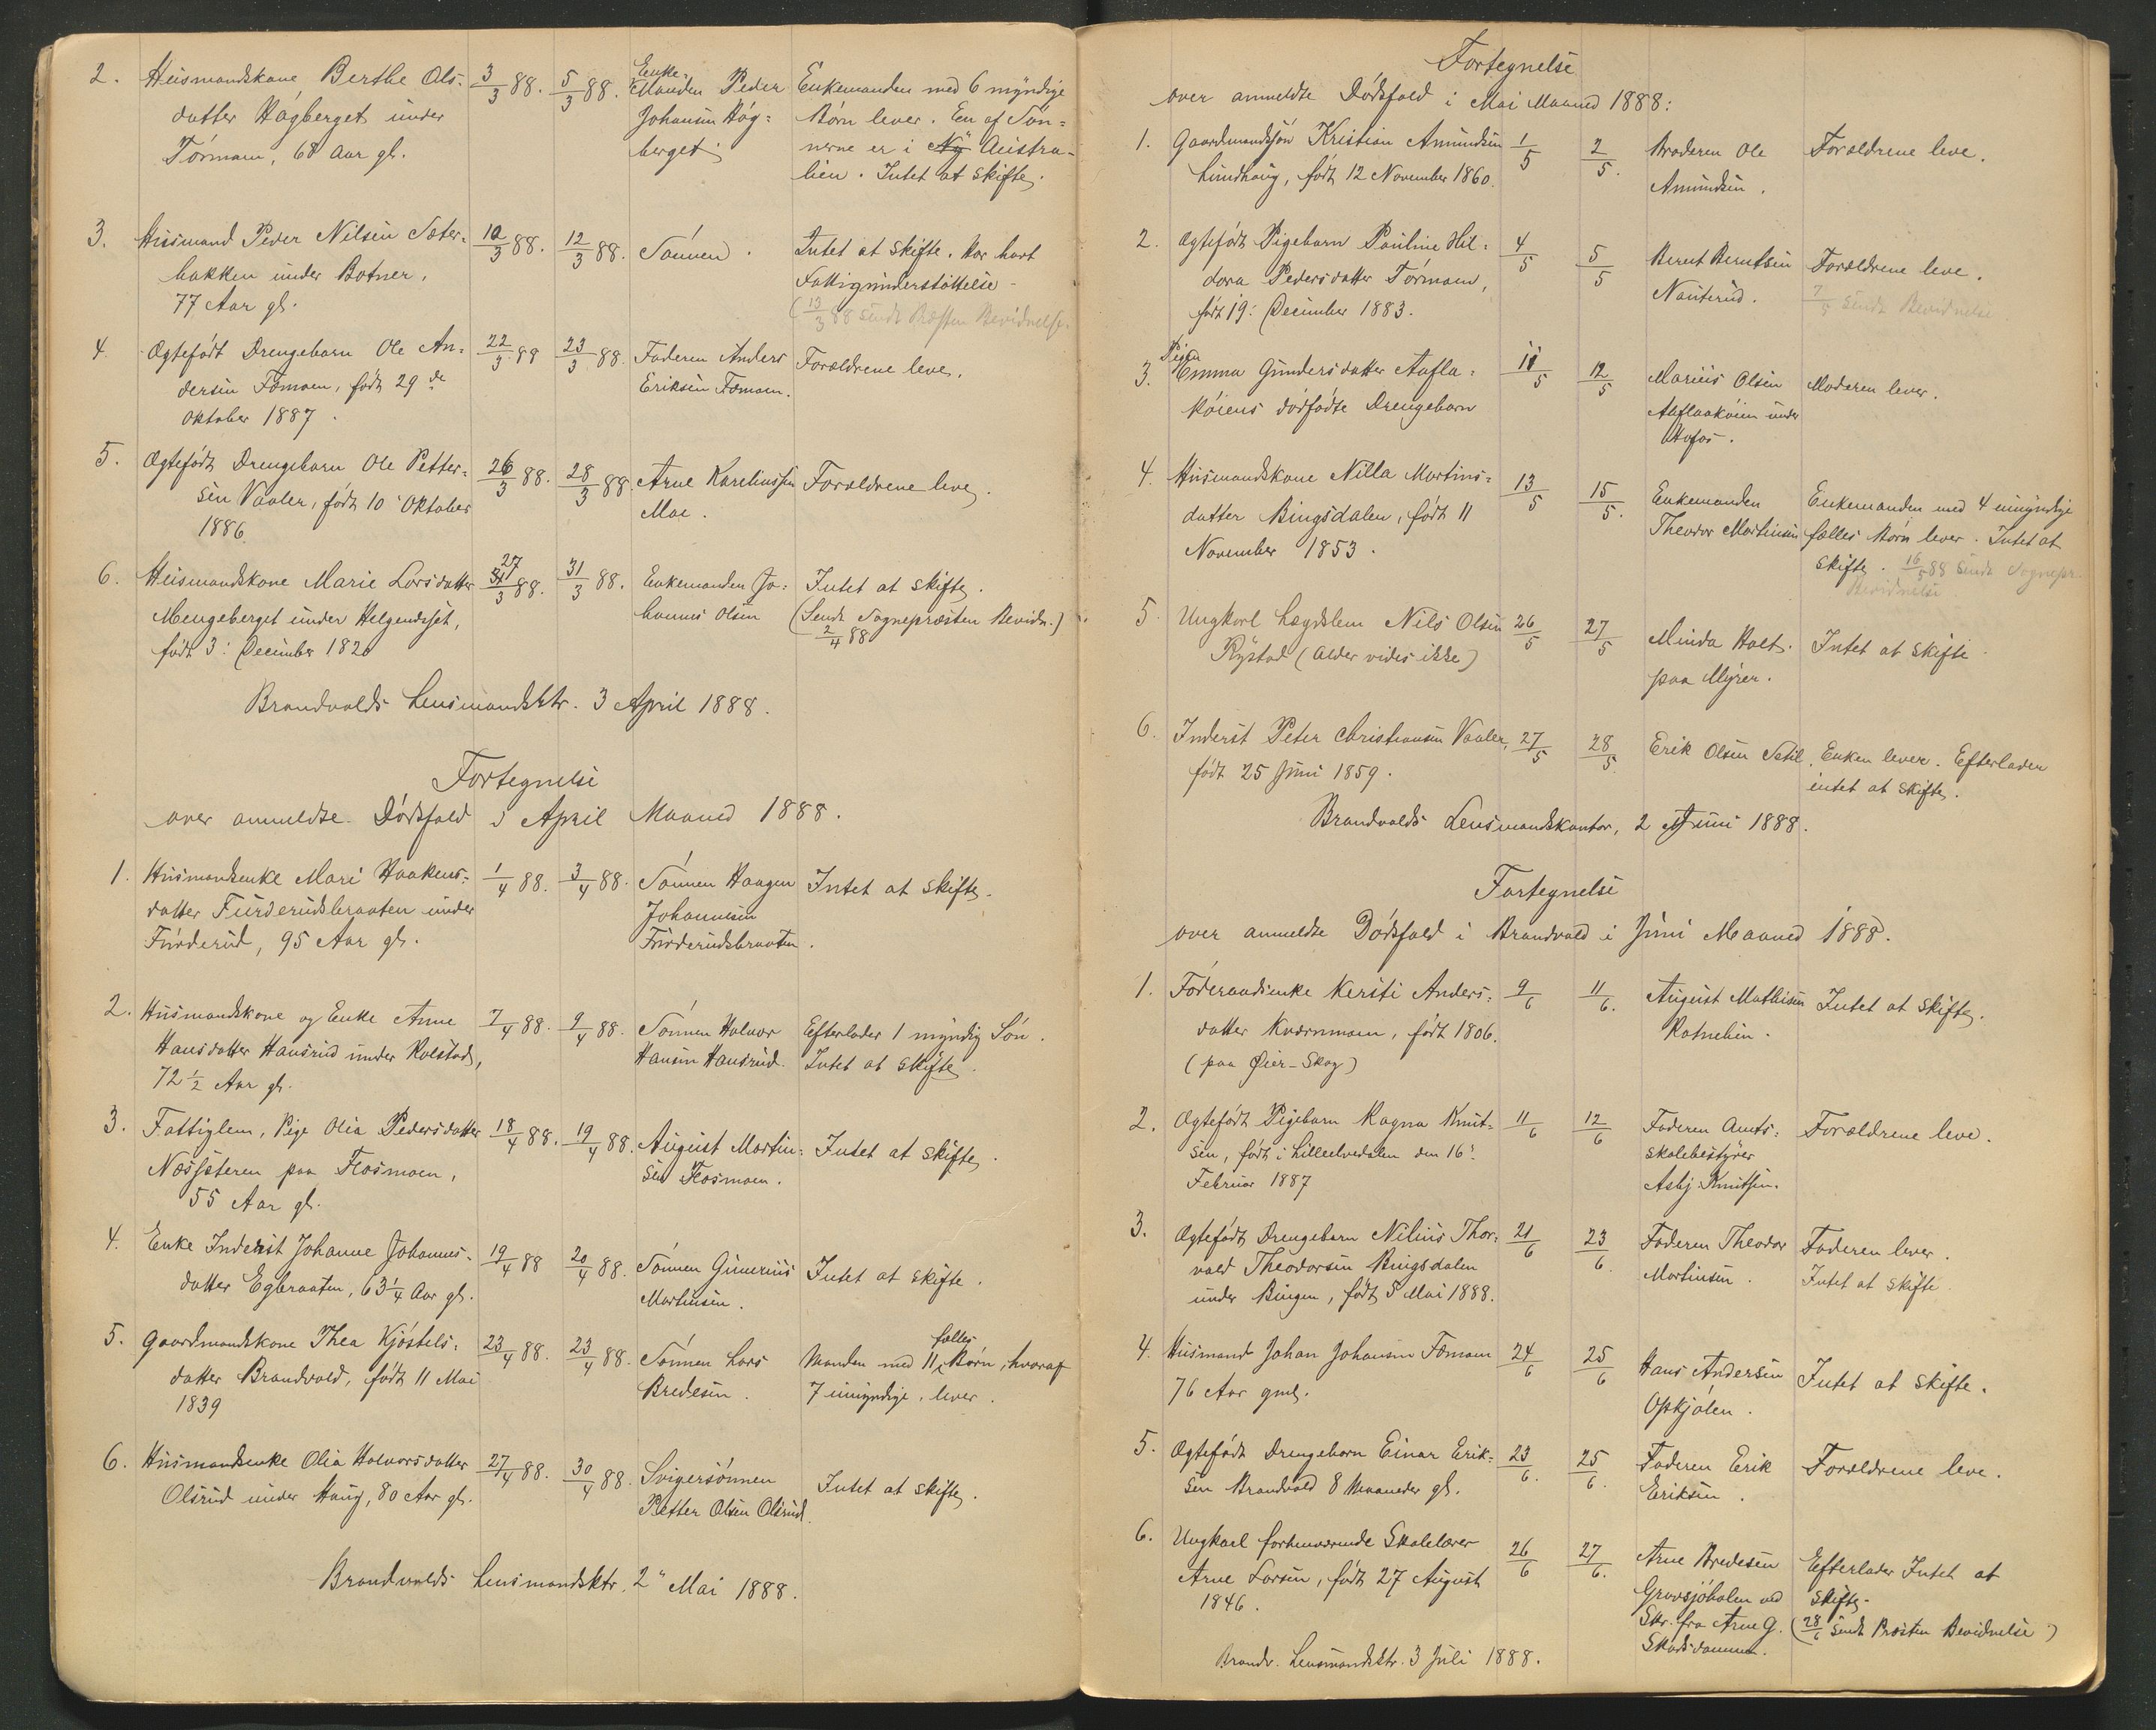 2. Husmandskone Berthe Ols-
datter Høgberget under
Tørmoen, 68 Aar gl.
3/3 88. 5/3 88.
Enke-
Manden Peder
Johansen Høg-
berget
Enkemanden med 6 myndige
Børn lever. En af Søn-
nerne er i Ny Austra-
lien. Intet at skifte.
3. Husmand Peder Nilsen Sæter-
bakken under Botner,
77 Aar gl.
12/3 88.
Sønnen.
Intet at skifte. Har havt
Fattigunderstøttelse
(13/3 88 sendt Præsten Bevidnelse.
4. Ægtefødt Drengebarn Ole An-
dersen Tomoen, født 29de
Oktober 1887.
22/3 88 23/3 88.
Faderen Anders
Eriksen Tomoen.
Forældrene leve.
5. Ægtefødt Drengebarn Ole Petter-
sen Vaaler, født 10 Oktober
1886
26/3 88. 28/3 88.
Arne Kareliussen
Moe.
Forældrene leve.
6. Husmandskone Marie Larsdatter
Mengeberget under Helgendset,
født 3: December 1820
27/3 88. 31/3 88.
Enkemanden Jo-
hannes Olsen
Intet at skifte.
(Sendt Sognepræsten Bevidn.)
2/4 88
Brandvolds Lensmandsktr. 3 April 1888.
Fortegnelse
over anmeldte Dødsfald i April Maaned 1888.
1. Husmandsenke Mari Haakens-
datter Furuderudsbraaten under
Furuderud, 95 Aar gl.
1/4 88. 3/4 88.
Sønnen Haagen
Johannesen
Furuderudsbraaten.
Intet at skifte.
2. Husmandskone og Enke Anne
Hansdatter Hansrud under Rolstad,
72 1/2 Aar gl.
7/4 88. 9/4 88.
Sønnen Halvor
Hansen Hansrud.
Efterlader 1 myndig Søn.
Intet at skifte.
3. Fattiglem, Pige Olia Pedersdatter
Næssæteren paa Flosmoen,
55 Aar gl.
18/4 88. 19/4 88.
August Martin-
sen Flosmoen.
Intet at skifte.
4. Enke Inderst Johanne Johannes-
datter Egbraaten, 63 1/4 Aar gl.
19/4 88 20/4 88.
Sønnen Gunerius
Martinsen.
Intet at skifte.
5. Gaardmandskone Thea Kjøstels-
datter Brandvold, født 11 Mai
1839
23/4 88. 23/4 88.
Sønnen Lars
Bredesen.
fælles
Manden med 11 Børn, hvoraf
7 umyndige, lever.
6. Husmandsenke Olia Halvorsdatter
Olsrud under Haug, 80 Aar gl.
27/4 88. 30/4 88.
Svigersønnen
Petter Olsen Olsrud.
Intet at skifte.
Brandvolds Lensmandsktr. 2 Mai 1888.
Fortegnelse
over anmeldte Dødsfald i Mai Maaned 1888:
1. Gaardmandssøn Kristian Amundsen
Lundhaug, født 12 November 1860.
1/5 2/5.
Broderen Ole
Amundsen.
Forældrene leve.
2. Ægtefødt Pigebarn Pauline Hil-
dora Pedersdatter Tørmoen,
født 19: December 1883.
4/5 5/5
Bernt Berntsen
Nauterud.
Forældrene leve.
7/5 sendt Bevidnelse
Pige
3. Emma Gundersdatter Aafla-
køiens dødfødte Drengebarn
11/5 12/5
Marius Olsen
Aaflaakøien under
Hofos.
Moderen lever.
4. Husmandskone Nilla Martins-
datter Bingsdalen, født 11
November 1853.
13/5 15/5.
Enkemanden
Theodor Martinsen
Enkemanden med 4 umyndige
fælles Børn lever. Intet at
skifte. 16/5 88 sendt Sognepr.
Bevidnelse
5. Ungkarl Lægdslem Nils Olsen
Rystad (Alder vides ikke)
26/5 27/5
Minda Holt
paa Myrer.
Intet at skifte
6. Inderst Peter Christiansen Vaaler,
født 25 Juni 1859.
27/5 28/5.
Erik Olsen
Enken lever. Efterlader
intet at skifte.
Brandvolds Lensmandskontor, 2 Juni 1888.
Fortegnelse
over anmeldte Dødsfald i Brandvold i Juni Maaned 1888.
1. Føderaadsenke Kersti Anders-
datter Kværnmoen, født 1806.
(paa Øier-Skog)
9/6 11/6.
August Mathisen
Intet at skifte.
2. Ægtefødt Pigebarn Ragna Knut-
sen, født i Lilleelvedalen den 16:
Februar 1887
11/6 12/6
Faderen Amts-
skolebestyrer
Asbj. Knutsen.
Forældrene leve.
3. Ægtefødt Drengebarn Nilius Thor-
vald Theodorsen Bingsdalen
under Bingen, født 5 Mai 1888.
21/6 23/6.
Faderen Theodor
Martinsen.
Faderen lever.
Intet at skifte
4. Husmand Johan Johansen Tomoen
76 Aar gml.
24/6 25/6
Hans Andersen
Opkjølen.
Intet at skifte.
5. Ægtefødt Drengebarn Einar Erik-
sen Brandvold 8 Maaneder gl.
23/6. 25/6.
Faderen Erik
Eriksen.
Forældrene leve.
6. Ungkarl forhenværende Skolelærer
Arne Larsen, født 27 August
1846.
26/6 27/6.
Arne Bredesen
Gravsjøbolen ved
Skr. fra Arne G.
Skadsdammen.
Efterlader Intet at
skifte.
(28/6 sendt Præsten Bevidnelse)
Brandv. Lensmandsktr. 3 Juli 1888.